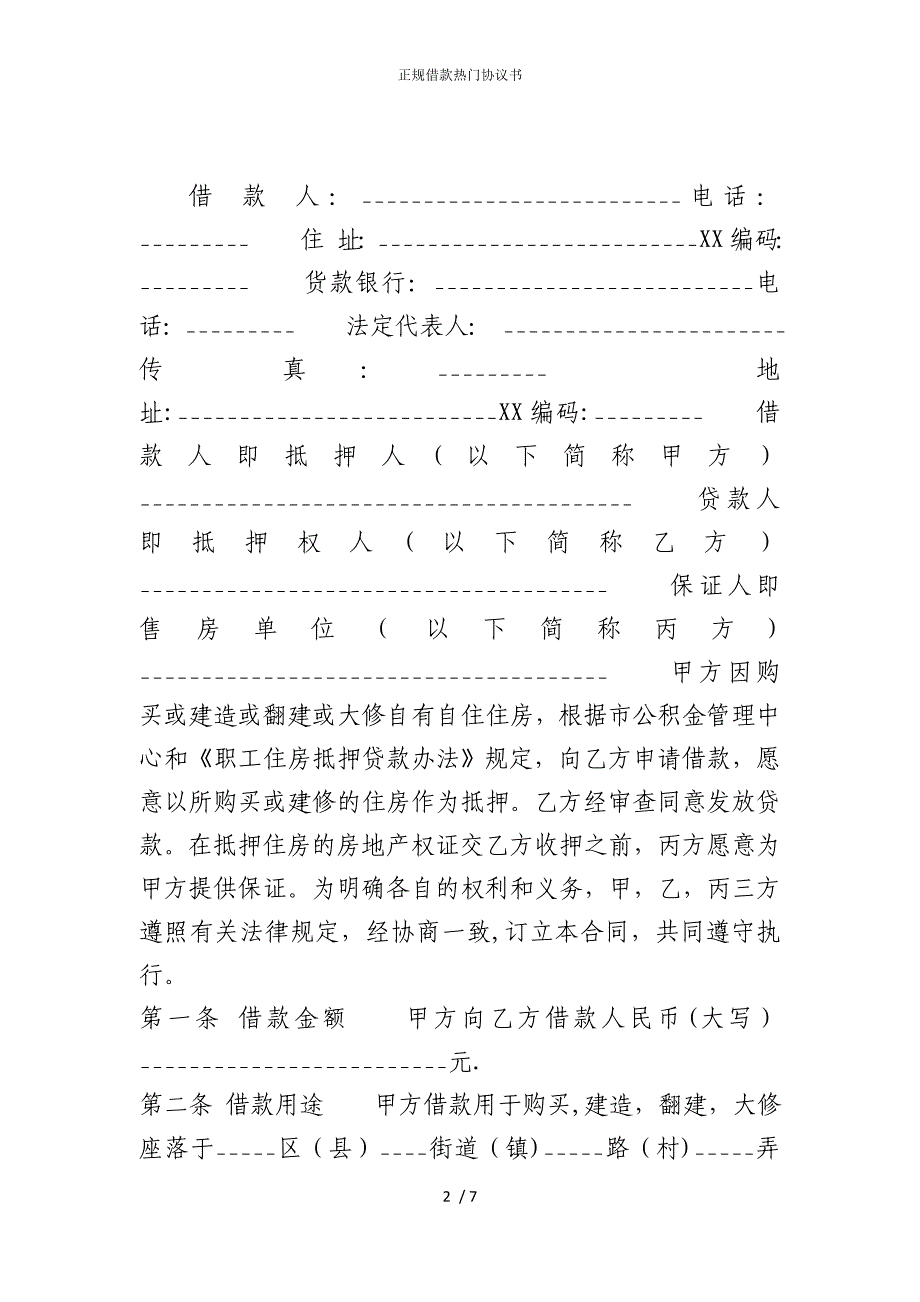 正规借款热门协议书
借 款 人: __________________________电话:
_________ 住 址: __________________________XX编码:
_________ 货款银行: __________________________电
话: _________ 法定代表人: _______________________
传 真: _________ 地
址:__________________________XX编码:_________ 借
款人即抵押人(以下简称甲方)
________________________________________ 贷款人
即抵押权人(以下简称乙方)
______________________________________ 保证人即
售房单位(以下简称丙方)
______________________________________ 甲方因购
买或建造或翻建或大修自有自住住房，根据市公积金管理中
心和《职工住房抵押贷款办法》规定，向乙方申请借款，愿
意以所购买或建修的住房作为抵押。乙方经审查同意发放贷
款。在抵押住房的房地产权证交乙方收押之前，丙方愿意为
甲方提供保证。为明确各自的权利和义务，甲，乙，丙三方
遵照有关法律规定，经协商一致,订立本合同，共同遵守执
行。
第一条 借款金额 甲方向乙方借款人民币(大写)
_________________________元.
第二条 借款用途 甲方借款用于购买,建造，翻建，大修
座落于_____区（县）____街道（镇)_____路（村)_____弄
2 / 7